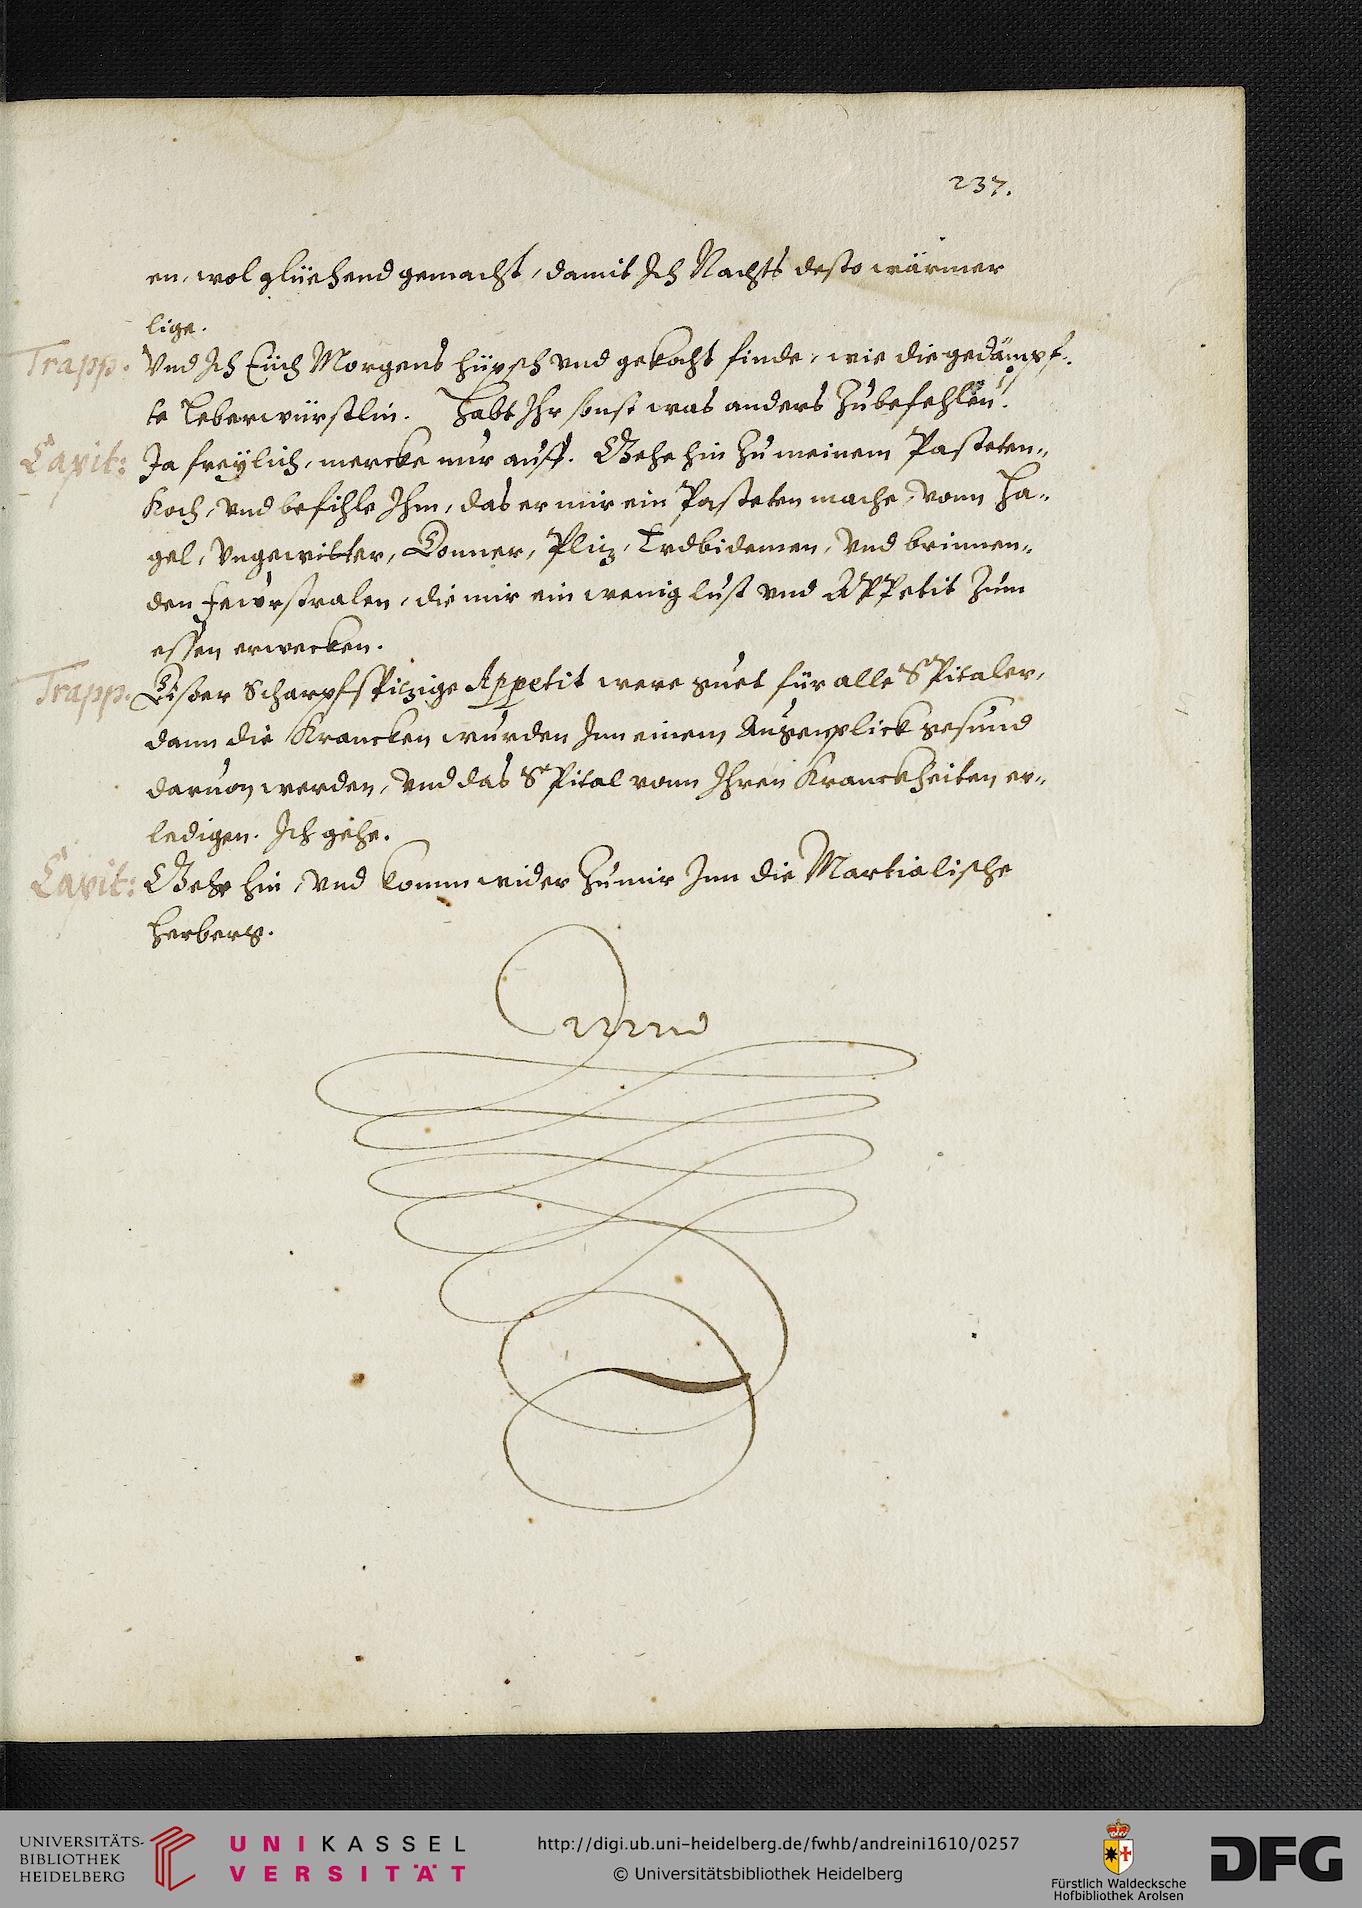 237.
en, wol glüehend gemacht, damit Ich Nachts desto wärmer
lige.
Trapp. Vnd Ich Eüch Morgens hüpsch vnd gekocht finde, wie die gedämpf-
te Leberwürstlin. Habt Ihr sonst was anders Zubefehlen?
Capit: Ja freÿlich, mercke nur auff. Gehe hin Zu meinem Pasteten-
Koch, vnd befihle Ihm, das er mir ein Pasteten mache, vonn Ha-
gel, Vngewitter, Donner, Pliz, Erdbidemen, Vnd brinnen-
den Fewrstralen, die mir ein wenig lust vnd APPetit Zum
essen erwecken.
Trapp. Dißer Scharpfspizige Appetit were guet für alle SPitaler,
dann die Krancken wurden Inn einem Augenplick gesund
daruon werden, vnd das SPital vonn Ihren Kranckheiten er-
ledigen. Ich gehe.
Capit: Gehe hin, Vnd komm wider Zu mir Inn die Martialische
Herberg.
UNIVERSITÄTS-
BIBLIOTHEK
HEIDELBERG
UNIKASSEL
VERSITÄT
http://digi.ub.uni-heidelberg.de/fwhb/andreini1610/0257
© Universitätsbibliothek Heidelberg
Fürstlich Waldecksche
Hofbibliothek Arolsen
DFG